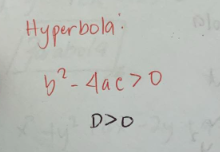 Hyperbola:
b² - 4ac > 0
D > 0